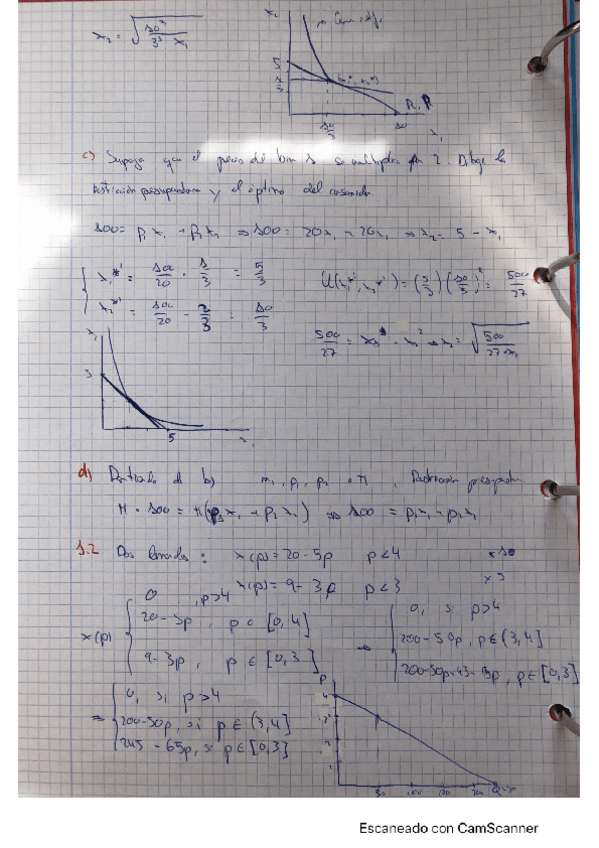 x₂ = √(10³ / 3³ x₁)
x₂
5
R. P.
10/3
10
x₁
c) Suponga que el precio del bien 1 se multiplica por 2. Dibuje la
restricción presupuestaria y el óptimo del consumidor
100 = p₁x₁ + p₂x₂ ⇒ 100 = 20x₁ + 20x₂ ⇒ x₂ = 5 - x₁
x₁*' = 100/20 · 1/3 = 5/3
U(x₁*', x₂*') = (5/3)(10/3)² = 500/27
x₂*' = 100/20 · 2/3 = 10/3
500/27 = x₁ · x₂² ⇒ x₂ = √(500 / 27·x₁)
5
5
x₁
d) Partiendo de b) m, p₁, p₂ · π, Restricción presupuestaria
π · 100 = π(p₁x₁ + p₂x₂) ⇒ 100 = p₁x₁ + p₂x₂
1.2 Dos : x(p) = 20 - 5p p<4 x 10
x(p) = 9 - 3p p<3 x 5
x(p) { 0 , p>4
20 - 5p, p ∈ [0,4]
9 - 3p, p ∈ [0,3]
⇒ { 0, si p>4
200 - 50p, p ∈ (3,4]
200-50p+45-15p, p ∈ [0,3]
⇒ { 0, si p>4
200-50p, si p ∈ (3,4]
245 - 65p, si p ∈ [0,3]
p
4
3
2
1
50 100
Escaneado con CamScanner